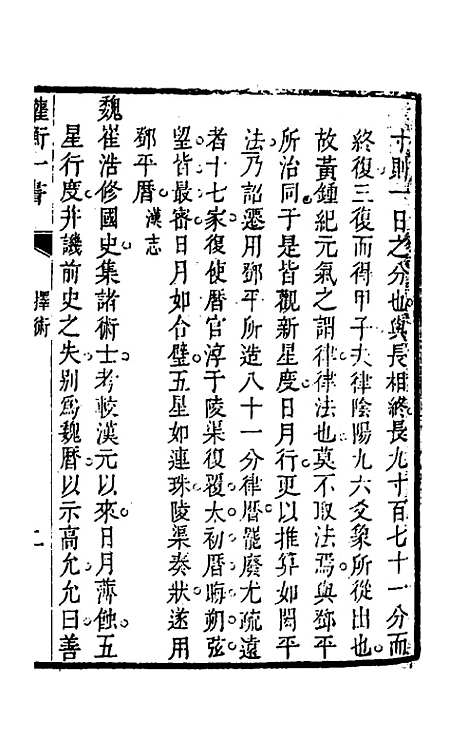 十則一日之分也與長相終長九十百七十一分而
終復三復而得甲子夫律陰陽九六爻象所從出也
故黃鍾紀元氣之謂律律法也莫不取法焉與鄧平
所治同于是皆觀新星度日月行更以推筭如閎平
法乃詔遷用鄧平所造八十一分律曆罷廢尤疏遠
者十七家復使曆官淳于陵渠復覆太初曆晦朔弦
望皆最密日月如合璧五星如連珠陵渠奏狀遂用
鄧平曆 漢志
魏崔浩修國史集諸術士考較漢元以來日月薄蝕五
星行度幷譏前史之失别爲魏曆以示高允允曰善
擇術